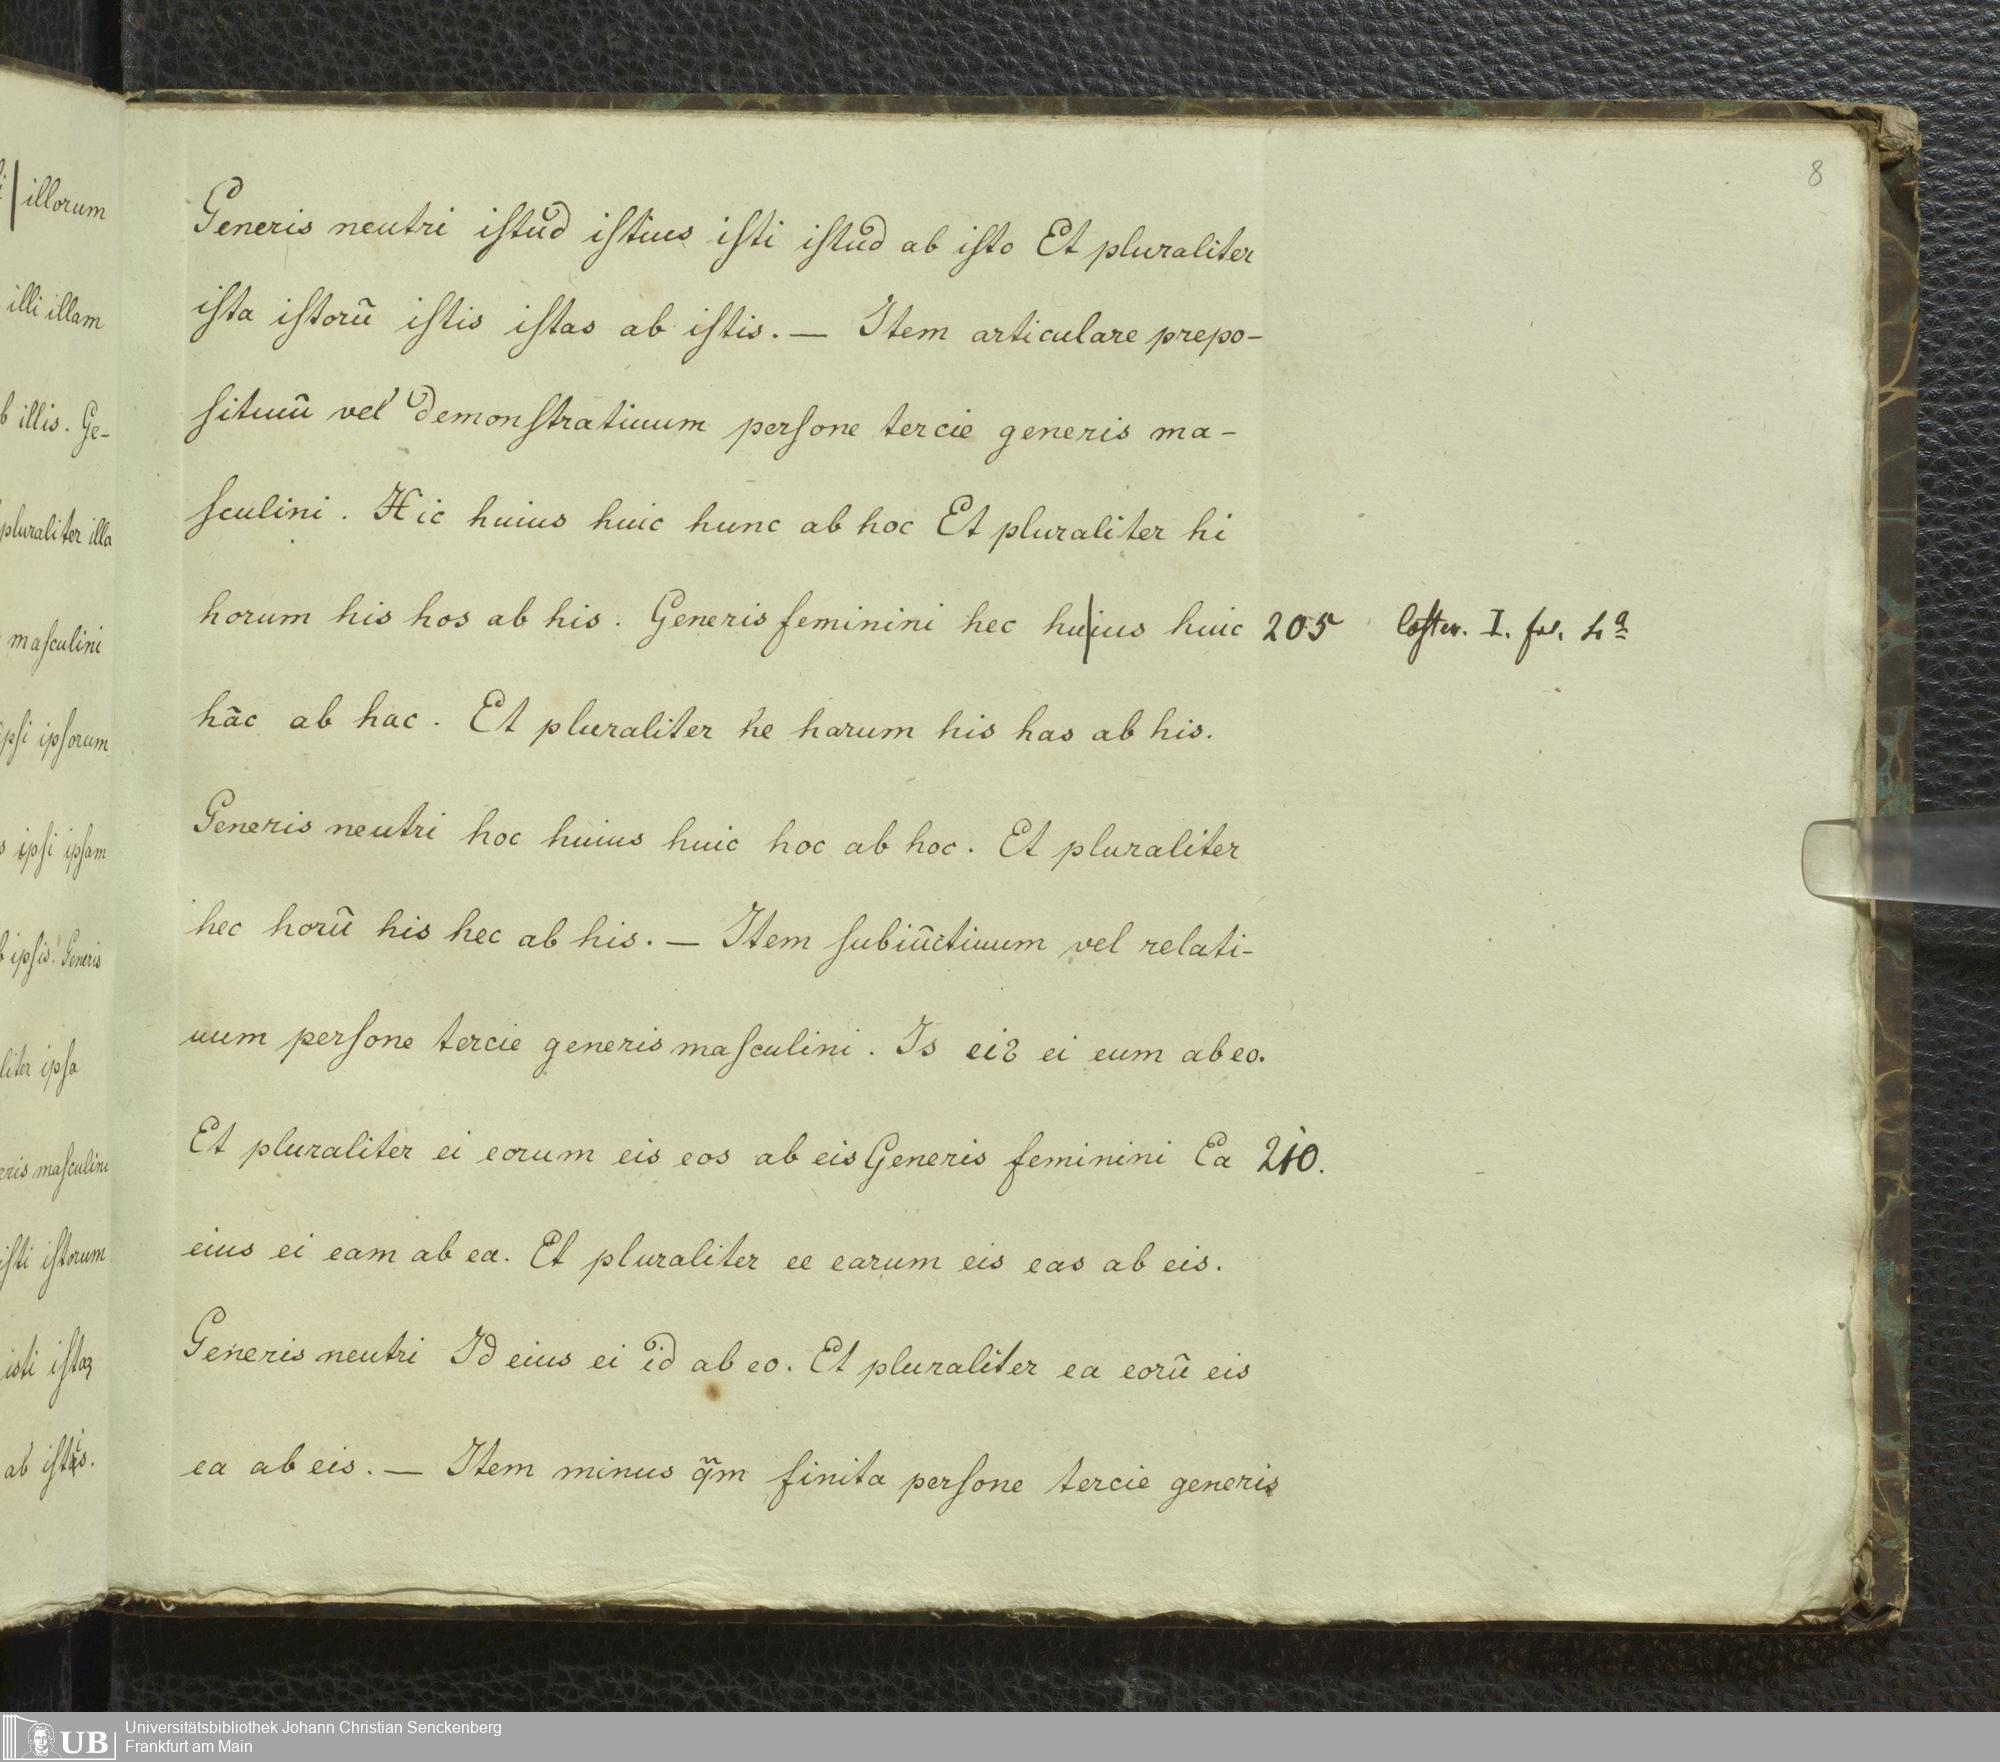 i | illorum
illi illam
b illis. Ge-
pluraliter illa
masculini
ipsi ipsorum
s ipsi ipsam
b ipsis. Generis
liter ipsa
eris masculini
isti istorum
isti istaʒ
ab istis.
8
Generis neutri iſtud iſtius iſti iſtud ab iſto Et pluraliter
iſta iſtorũ iſtis iſtas ab iſtis. — Item articulare prepo-
ſituuũ vel demonſtratiuum perſone tercie generis ma-
ſculini. Hic huius huic hunc ab hoc Et pluraliter hi
horum his hos ab his. Generis feminini hec hu|ius huic 205 Coſter. I. fol. 4ª
hãc ab hac. Et pluraliter he harum his has ab his.
Generis neutri hoc huius huic hoc ab hoc. Et pluraliter
hec horũ his hec ab his. — Item ſubiũctiuum vel relati-
uum perſone tercie generis maſculini. Is eiꝰ ei eum ab eo.
Et pluraliter ei eorum eis eos ab eis Generis feminini Ea 210.
eius ei eam ab ea. Et pluraliter ee earum eis eas ab eis.
Generis neutri Id eius ei id ab eo. Et pluraliter ea eorũ eis
ea ab eis. — Item minus q̃m finita perſone tercie generis
UB Universitätsbibliothek Johann Christian Senckenberg
Frankfurt am Main